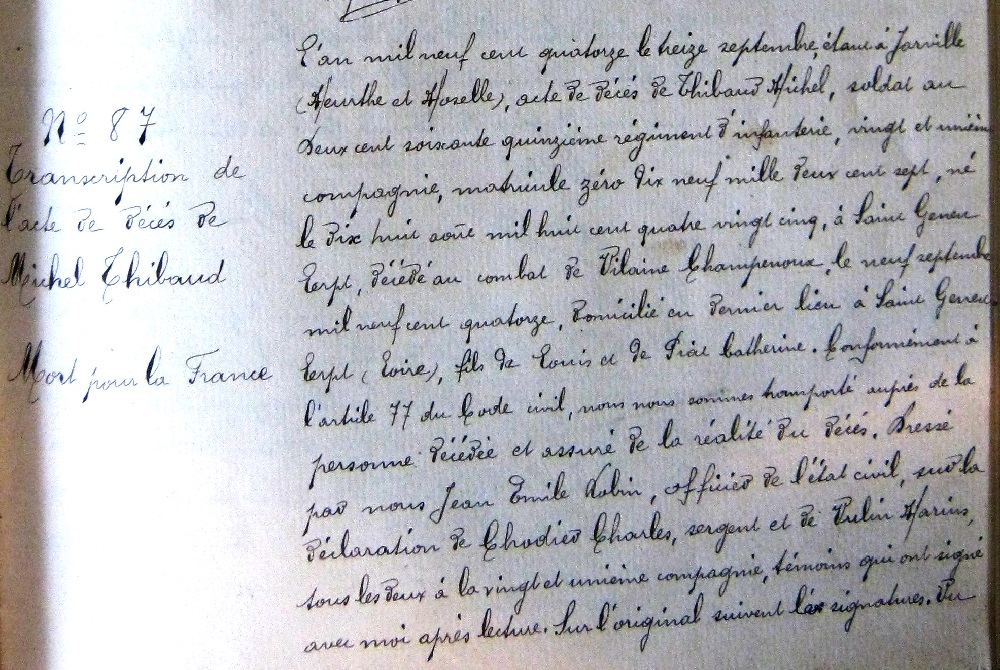 N° 87
Transcription de
l'acte de décès de
Michel Thibaud
Mort pour la France
L'an mil neuf cent quatorze le treize septembre, étant à Jarville
(Meurthe et Moselle), acte de décès de Thibaud Michel, soldat au
deux cent soixante quinzième régiment d'infanterie, vingt et unième
compagnie, matricule zéro dix neuf mille deux cent sept, né
le dix huit août mil huit cent quatre vingt cinq, à Saint Genest
Lerpt, décédé au combat de Vilaine Champenoux, le neuf septembre
mil neuf cent quatorze, domicilié en dernier lieu à Saint Genest
Lerpt (Loire), fils de Louis et de Catherine. Conformément à
l'article 77 du Code civil, nous nous sommes transporté auprès de la
personne décédée et assuré de la réalité du décès. Dressé
par nous Jean Emile Robin, officier de l'état civil, sur la
déclaration de Chodier Charles, sergent et de Marius,
tous les deux à la vingt et unième compagnie, témoins qui ont signé
avec moi après lecture. Sur l'original suivent les signatures. Vu